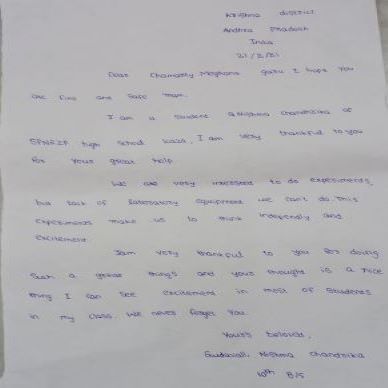 Krishna district
Andhra Pradesh
India
21/2/21
Dear Chamarthy Meghana garu I hope you
are fine and safe mam.
I am a student G.Krishna chandrika of
high school I am very thankful to you
for your great help
We are very interested to do experiments,
but lack of laboratory equipment we can't do. This
experiments make us to think independly and
excitement.
Iam very thankful to you for doing
such a great things and your thought is a nice
thing I can see excitement in most of students
in my class. We never forget you.
Your's beloved,
Krishna chandrika
10th B/S